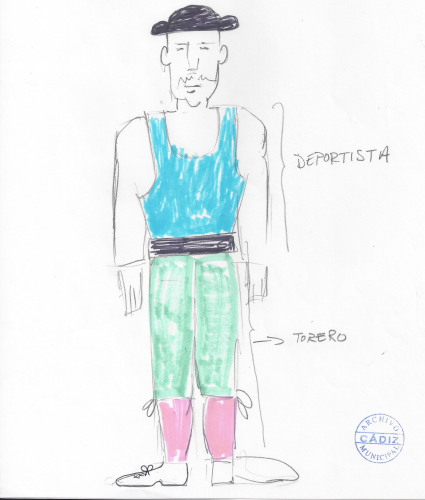 DEPORTISTA
TORERO
ARCHIVO
CÁDIZ
MUNICIPAL